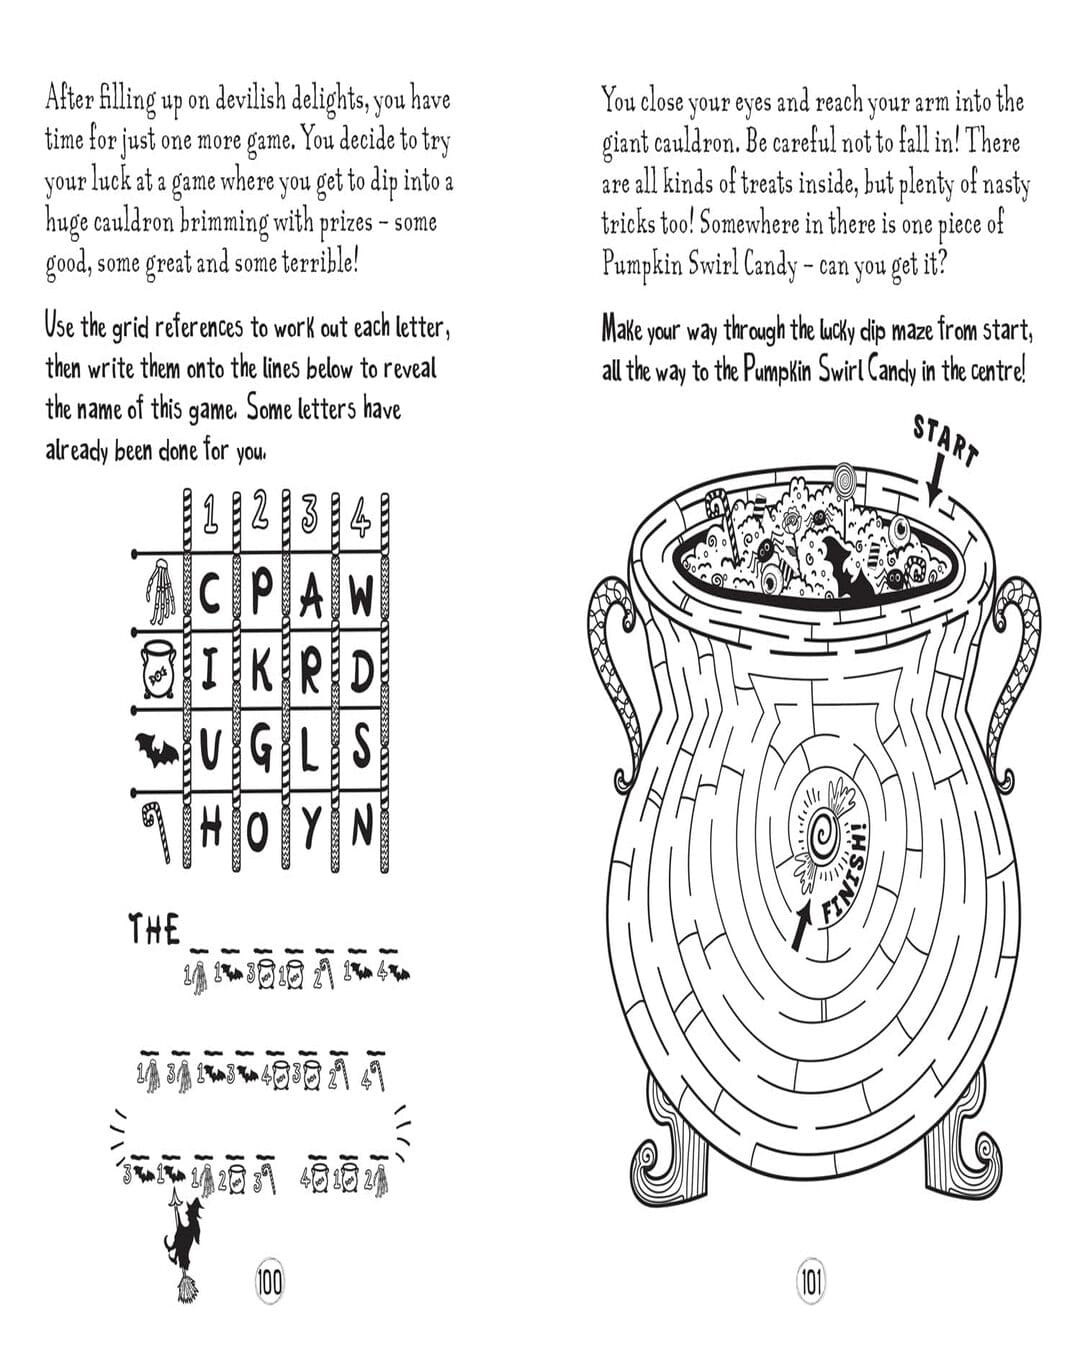 After filling up on devilish delights, you have
time for just one more game. You decide to try
your luck at a game where you get to dip into a
huge cauldron brimming with prizes – some
good, some great and some terrible!
Use the grid references to work out each letter,
then write them onto the lines below to reveal
the name of this game. Some letters have
already been done for you.
1 2 3 4
C P A W
DOG I K R D
U G L S
H O Y N
THE
1 1 3 1 2 1 4
1 3 1 3 4 3 2 4
3 1 1 2 3 4 1 2
100
You close your eyes and reach your arm into the
giant cauldron. Be careful not to fall in! There
are all kinds of treats inside, but plenty of nasty
tricks too! Somewhere in there is one piece of
Pumpkin Swirl Candy – can you get it?
Make your way through the lucky dip maze from start,
all the way to the Pumpkin Swirl Candy in the centre!
START
FINISH!
101